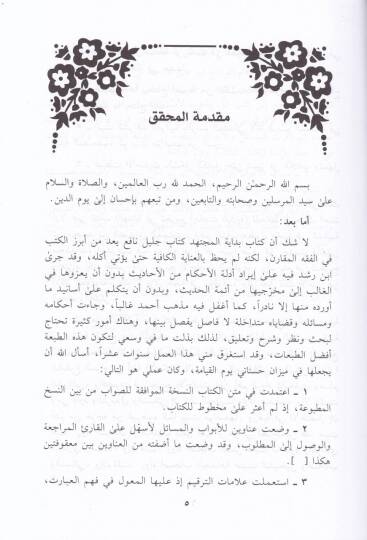 مقدمة المحقق
بسم الله الرحمن الرحيم، الحمد لله رب العالمين، والصلاة والسلام
على سيد المرسلين وصحابته والتابعين، ومن تبعهم بإحسان إلى يوم الدين.
أما بعد:
لا شك أن كتاب بداية المجتهد كتاب جليل نافع يعد من أبرز الكتب
في الفقه المقارن، لكنه لم يحظ بالعناية الكافية حتى يؤتي أكله، وقد جرى
ابن رشد فيه على إيراد أدلة الأحكام من الأحاديث بدون أن يعزوها في
الغالب إلى مخرّجيها من أئمة الحديث، وبدون أن يتكلم على أسانيد ما
أورده منها إلا نادراً، كما أغفل فيه مذهب أحمد غالباً، وجاءت أحكامه
ومسائله وقضاياه متداخلة لا فاصل يفصل بينها، وهناك أمور كثيرة تحتاج
لبحث ونظر وشرح وتعليق، لذلك بذلت ما في وسعي لتكون هذه الطبعة
أفضل الطبعات، وقد استغرق مني هذا العمل سنوات عشراً، أسأل الله أن
يجعلها في ميزان حسناتي يوم القيامة، وكان عملي هو التالي:
١ ـ اعتمدت في متن الكتاب النسخة الموافقة للصواب من بين النسخ
المطبوعة، إذ لم أعثر على مخطوط للكتاب.
٢ ـ وضعت عناوين للأبواب والمسائل لأسهّل على القارئ المراجعة
والوصول إلى المطلوب، وقد وضعت ما أضفته من العناوين بين معقوفتين
هكذا [ ].
٣ ـ استعملت علامات الترقيم إذ عليها المعول في فهم العبارت،
٥